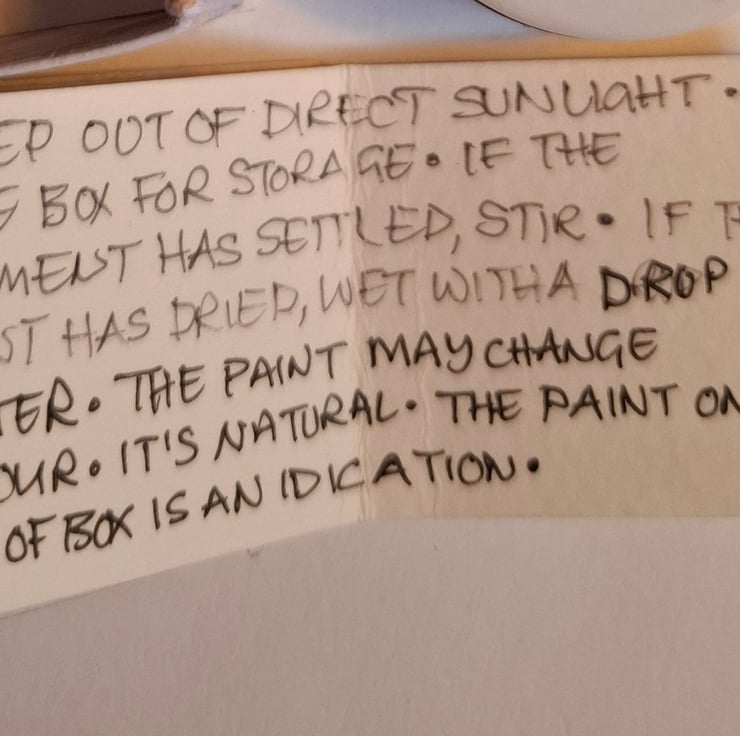 EP OUT OF DIRECT SUNLIGHT •
BOX FOR STORAGE • IF THE
MENT HAS SETTLED, STIR • IF T
ST HAS DRIED, WET WITH A DROP
TER • THE PAINT MAY CHANGE
OUR • IT'S NATURAL • THE PAINT ON
OF BOX IS AN IDICATION •